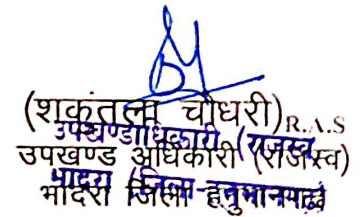 (शकुंतला चौधरी) R.A.S
उपखण्डाधिकारी (राजस्व
उपखण्ड अधिकारी (राजस्व)
भादरा (जिला-हनुमानगढ़
भादरा जिला हनुमानगढ़